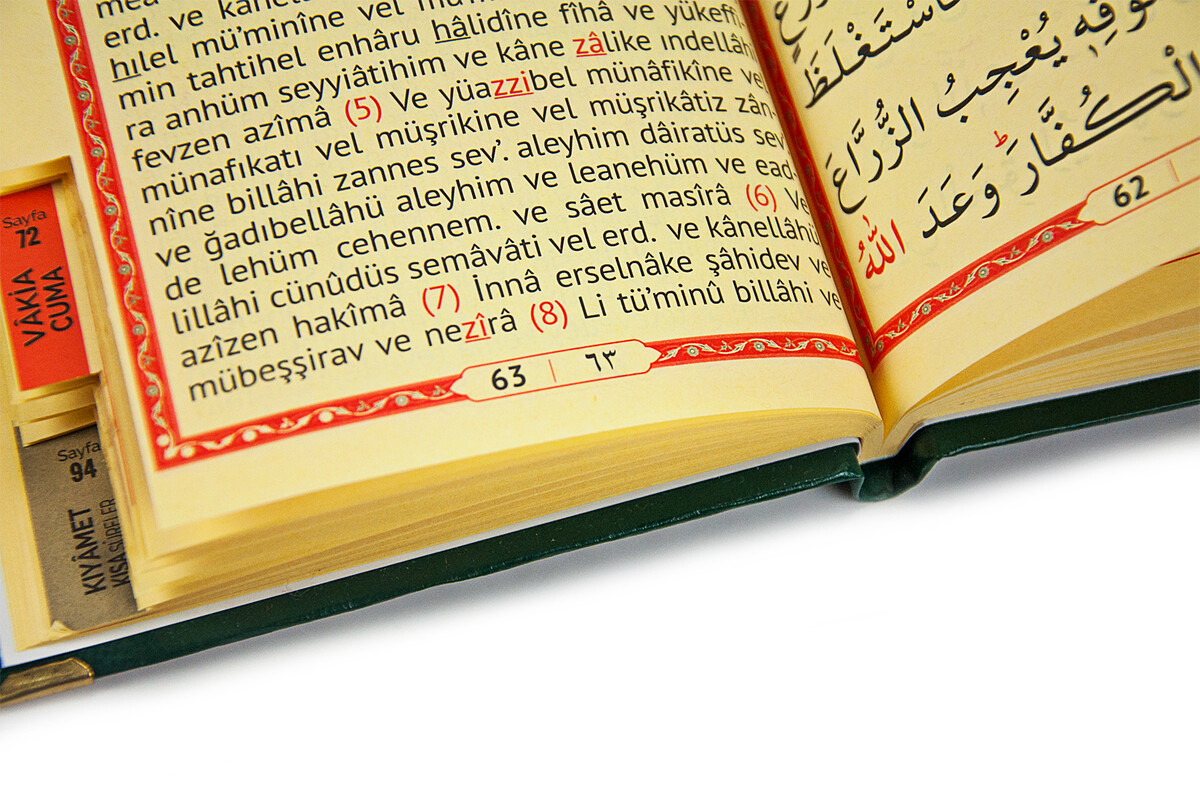 erd. ve
hılel mü'minîne vel
min tahtihel enhâru hâlidîne fîhâ ve yükeffi-
ra anhüm seyyiâtihim ve kâne zâlike ındellâhi
fevzen azîmâ (5) Ve yüazzibel münâfikîne vel
münafıkatı vel müşrikine vel müşrikâtiz zân-
nîne billâhi zannes sev'. aleyhim dâiratüs sev'
ve ğadıbellâhü aleyhim ve leanehüm ve ead-
de lehüm cehennem. ve sâet masîrâ (6) Ve
lillâhi cünûdüs semâvâti vel erd. ve kânellâhü
azîzen hakîmâ (7) İnnâ erselnâke şâhidev ve
mübeşşirav ve nezîrâ (8) Li tü'minû billâhi ve
63 | ٦٣
Sayfa
72
VÂKIA
CUMA
Sayfa
94
KIYÂMET
KISA SÛRELER
يُعْجِبُ الزُّرَّاعَ
الْكُفَّارَ وَعَدَ اللّٰهُ
62